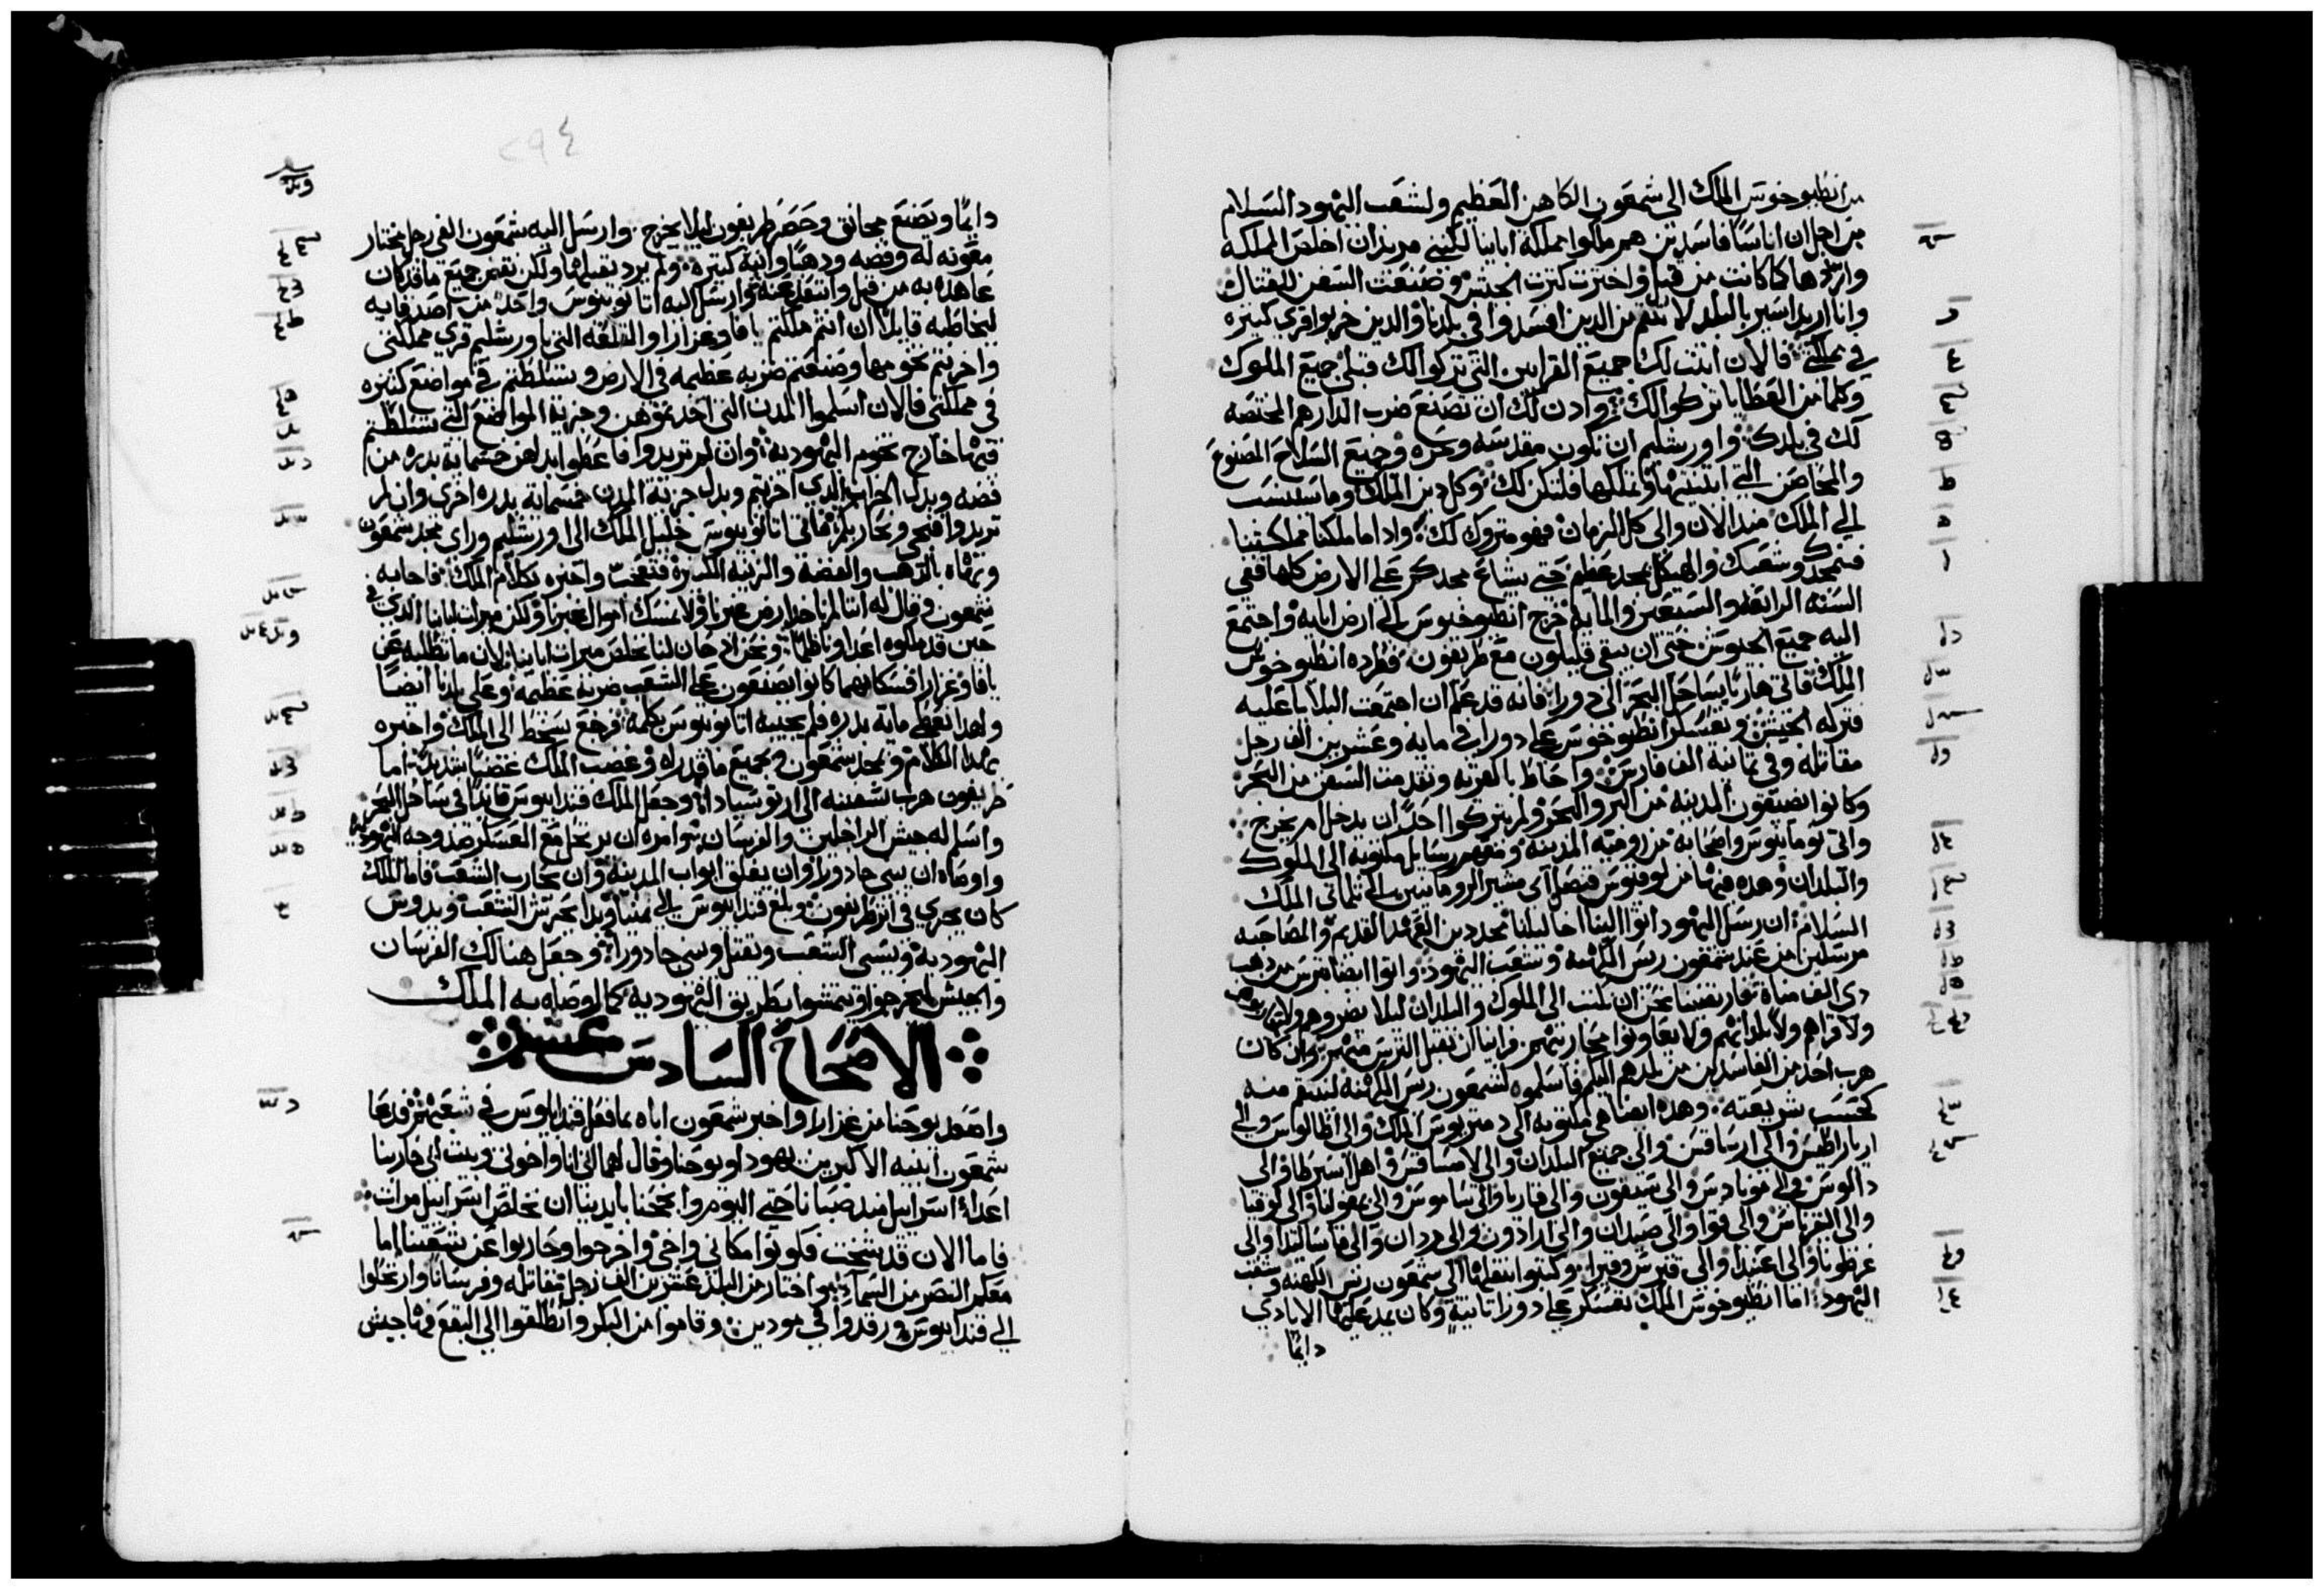 من انطيوخوس الملك الى شمعون الكاهن العظيم ولشعب اليهود السلام
من اجل ان اناسا فاسدين هم ملكوا مملكة ابانيا لكنني مريد ان اخلص المملكه
واردها كما كانت من قبل واخترت كترت الجيش وصنعت السفن للقتال
وانا اريد اسير بالبلد لانتقم من الدين افسدوا في بلدنا والدين خربوا قري كتيره
في مملكتي فالان اتبت لك جميع القرابين التي تركوا لك قبلي جميع الملوك
وكلما من العطايا تركوا لك وادن لك ان تصنع ضرب الدارهم المختصه
لك في بلدك واورشليم ان تكون مقدسه وحره وجميع السلاح المصنوع
والمحاصن التي ابتنيتها وتملكها فلتكن لك وكل دين الملك وما سينسب
الي الملك مند الان والى كل الزمان فهو متروك لك واداما ملكنا مملكتنا
فنمجدك وشعبك والهيكل بمجد عظيم حتي يشاع مجدكم على الارض كلها ففي
السنه الرابعه والسبعين والمايه خرج انطيوخوس الى ارض ابايه واجتمع
اليه جميع الجيوش حتى ان يبقى قليلون مع طريفون فطرده انطيوخوس
الملك فاتى هاربا بساحل البحر الى دورا فانه قد علم ان اجتمعت البلايا عليه
فتركه الجيش وتعسكر انطيوخوس على دورا في مايه وعشرين الف رجل
مقاتله وفي تمانية الف فارس واحاط بالمدينه وتقدمت السفن من البحر
وكانوا يضيقون المدينه من البر والبحر ولم يتركوا احدا ان يدخل ام يخرج
واتى نومانيوس واصحابه من رومية المدينه ومعهم رسايل مكتوبه الى الملوك
والبلدان وهده فيها من لوقيوس قنصل اي مشير الرومانيين الى تلماي الملك
السلام ان رسل اليهود اتوا الينا احبابنا مجددين العهد القديم والمصاحبه
مرسلين من عند شمعون ريس الكهنه وشعب اليهود واتوا ايضا بترس من دهب
دي الف مناة فارتضينا نحن ان نكتب الى الملوك والبلدان ليلا يضروهم ولا يحاربوهم
ولا قراهم ولا بلدانهم ولا يعاونوا محاربيهم فراينا ان نقبل الترس منهم وان كان
هرب احد من الفاسدين من بلدهم اليكم فاسلموه لشمعون ريس الكهنه لينتقم منه
كحسب شريعته وهده ايضا هي مكتوبه الى دمتريوس الملك والى اطالوس والى
ارياراطيس والى ارساقيس والى جميع البلدان والى لامساقس واهل اسبرطا والى
دالوس والى مونادس والى سيقون والى قاريا والى ساموس والى بمفوليا والى لوقيا
والى اليقرناس والى قوا والى صيدان والى ارادون والى رودان والى فاساليدا والى
غرطونا والى غنيدا والى قبرس وقيرا وكتبوا نقلها الى شمعون ريس الكهنه وشعب
اليهود اما انطيوخوس الملك تعسكر على دورا تانية وكان يمد عليها الايادي
دايما
٢٩٤
دايما ويصنع مجانق وحصر طريفون ليلا يخرج وارسل اليه شمعون الفي رجل مختار
معونه له وفضه ودهبا وانية كتيره ولم يرد يقبلها ولكن نقض جميع ما قد كان
عاهده به من قبل وابتعد عنه وارسل اليه اتانوبيوس واحد من اصدقايه
ليخاطبه قايلا ان انتم ملكتم يافا وعزارا والقلعه التي باورشليم قري مملكتي
واخربتم تخومها وصنعتم ضربه عظيمه في الارض وتسلطتم في مواضع كتيره
في مملكتي فالان اسلموا المدن التي اخدتموهن وجزية المواضع التي تسلطتم
فيها خارج تخوم اليهوديه وان لم تريدوا فاعطوا بدلهن خمسمايه بدره من
فضه وبدل الخراب الدي اخربتم وبدل جزية المدن خمسماية بدره اخرى وان لم
تريدوا فنجي ونحاربكم فاتى اتانوبيوس خليل الملك الى اورشليم وراى مجد شمعون
وبهاه بالدهب والفضه والزينه الكتيره فتعجب واخبره بكلام الملك فاجابه
شمعون وقال له اننا لم ناخد ارض غيرنا ولا نمسك اموال غيرنا ولكن ميرات ابانيا الدي في
حين قد ملكوه اعداونا ظلما ونحن اد حان لنا نخلص ميرات ابانيا لان ما تطلبه عن
يافا وغزارا فسكانهما كانوا يصنعون على الشعب ضربه عظيمه وعلى بلدنا ايضا
ولهدا نعطي مايه بدره فلم يجيبه اتانوبيوس بكلمه فرجع بسخط الى الملك واخبره
بهدا الكلام وبمجد شمعون وبجميع ما قد راه وغضب الملك غضبا شديدا اما
طريفون هرب بسفينه الى ارتوسيادا وجعل الملك قندابيوس قايدا في ساحل البحر
واسلم له جيش الراجلين والفرسان وامره ان يرتحل مع العسكر ضد وجه اليهوديه
واوصاه ان يبني جادورا وان يغلق ابواب المدينه وان يحارب الشعب فاما الملك
كان يجري في اتر طريفون وبلغ قندابيوس الى يمنيا وبدا يحرش الشعب ويدوس
اليهوديه ويسبي الشعب ويقتل ويبني جادورا وجعل هنالك الفرسان
والجيش ليخرجوا ويمشوا بطريق اليهوديه كما اوصاه به الملك
الاصحاح السادس عشر
واصعد يوحنا من غزارا واخبر شمعون اباه بما فعل قندابيوس في شعبهم فدعا
شمعون ابنيه الاكبرين يهودا ويوحنا وقال لهما اني انا واخوتي وبيت ابي حاربنا
اعداء اسراييل مند صبانا حتي اليوم وانجحنا بايدينا ان نخلص اسراييل مرات
فاما الان قد شخت فكونوا مكاني واخي واخرجوا وحاربوا عن شعبنا اما
معكم النصر من السما واختار من البلد عشرين الف رجل مقاتله وفرسانا وارتحلوا
الي قندابيوس ورقدوا في مودين وقاموا من البكر وانطلقوا الى البقع وهاجيش